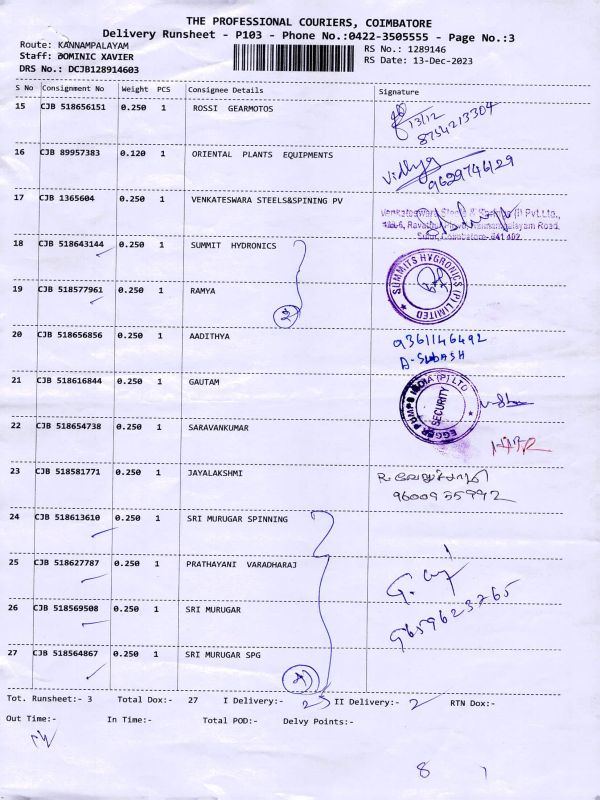 THE PROFESSIONAL COURIERS, COIMBATORE
Delivery Runsheet - P103 - Phone No.:0422-3505555 - Page No.:3
Route: KANNAMPALAYAM
Staff: DOMINIC XAVIER
DRS No.: DCJB128914603
RS No.: 1289146
RS Date: 13-Dec-2023
S No Consignment No Weight PCS Consignee Details Signature
15 CJB 518656151 0.250 1 ROSSI GEARMOTOS
13/12
8754213304
16 CJB 89957383 0.120 1 ORIENTAL PLANTS EQUIPMENTS
Vidhya
9629746129
17 CJB 1365604 0.250 1 VENKATESWARA STEELS&SPINING PV
Venkateswara Steels & Springs (I) Pvt.Ltd.,
Sulur, Coimbatore- 641 402.
18 CJB 518643144 0.250 1 SUMMIT HYDRONICS
SUMMITS HYGRONICS (P) LIMITED
19 CJB 518577961 0.250 1 RAMYA
2
20 CJB 518656856 0.250 1 AADITHYA
9361146492
A-SUBASH
21 CJB 518616844 0.250 1 GAUTAM
EGGER PUMPS INDIA (P) LTD
SECURITY
22 CJB 518654738 0.250 1 SARAVANKUMAR
23 CJB 518581771 0.250 1 JAYALAKSHMI
9600955992
24 CJB 518613610 0.250 1 SRI MURUGAR SPINNING
25 CJB 518627787 0.250 1 PRATHAYANI VARADHARAJ
26 CJB 518569508 0.250 1 SRI MURUGAR
9659623765
27 CJB 518564867 0.250 1 SRI MURUGAR SPG
4
Tot. Runsheet:- 3 Total Dox:- 27 I Delivery:- 25 II Delivery:- 2 RTN Dox:-
Out Time:- In Time:- Total POD:- Delvy Points:-
8